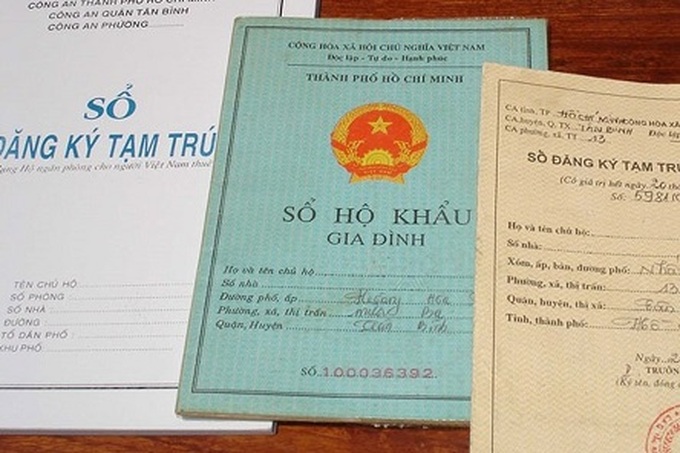 CÔNG AN THÀNH PHỐ HỒ CHÍ MINH
CÔNG AN QUẬN TÂN BÌNH
CÔNG AN PHƯỜNG:
SỔ
ĐĂNG KÝ TẠM TRÚ
ạng Hộ ngăn phòng cho người Việt Nam thuê
TÊN CHỦ HỘ
SỐ PHÒNG
SỐ NHÀ
ĐƯỜNG
TỔ DÂN PHỐ
KHU PHỐ
CỘNG HÒA XÃ HỘI CHỦ NGHĨA VIỆT NAM
Độc lập - Tự do - Hạnh phúc
THÀNH PHỐ HỒ CHÍ MINH
SỔ HỘ KHẨU
GIA ĐÌNH
Họ và tên chủ hộ
Số nhà
Đường phố, ấp Hoàng Hoa
Phường, xã, thị trấn mười ba
Quận, Huyện Tân Bình
SỐ 100036392
CA tỉnh, TP HỒ CHÍ MINH CỘNG HÒA XÃ
CA huyện, Q, TX TÂN BÌNH Độc lập
CA phường, xã, TT 13
SỔ ĐĂNG KÝ TẠM TRÚ
(Có giá trị hết ngày 20 thá
Số: 5981
Họ và tên chủ hộ:
Số nhà:
Xóm, ấp, bản, đường phố:
Phường, xã, thị trấn: 13
Quận, huyện, thị xã: Tân
Tỉnh, thành phố: Hồ
Ngày 2
TRƯỞN
(Ký tên, đóng